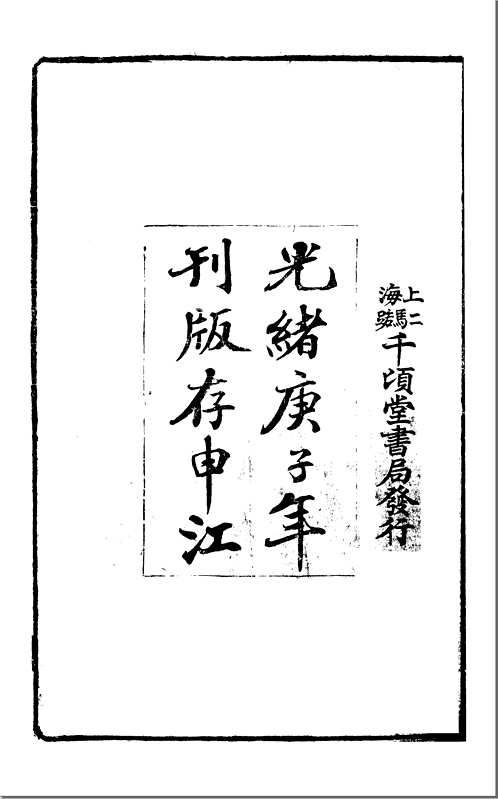 上海
二馬路
千頃堂書局發行
光緒庚子年
刊版存申江